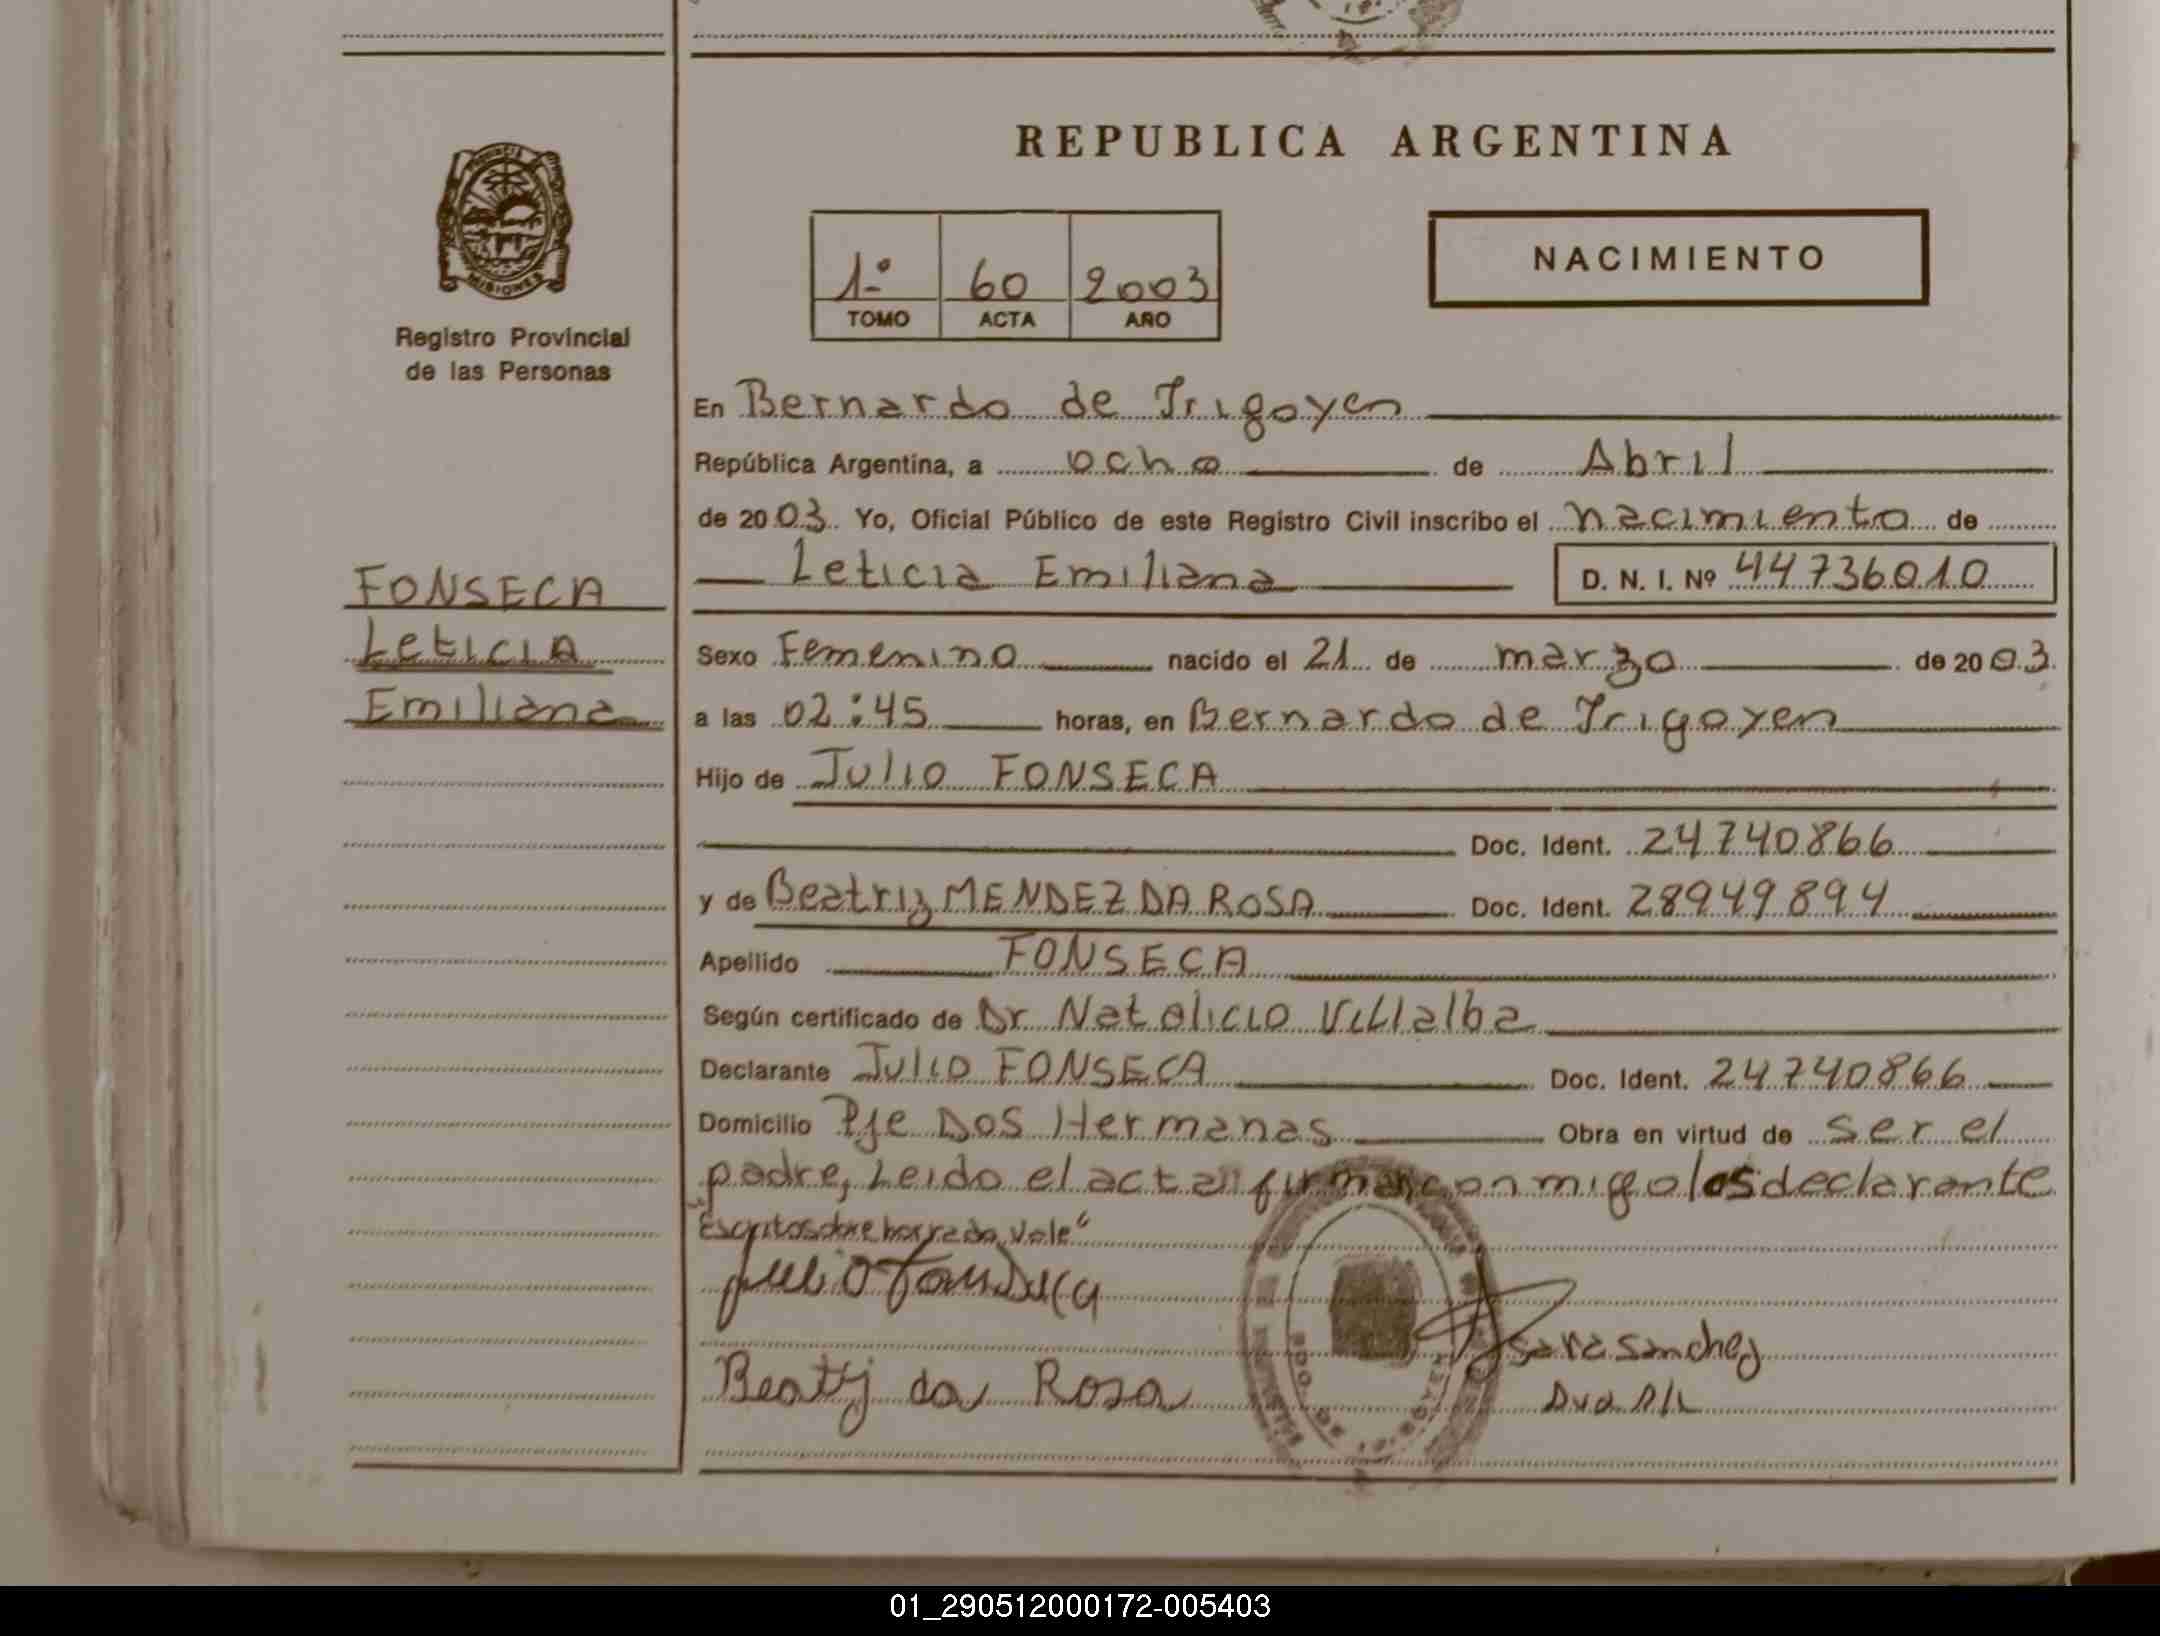 REPUBLICA ARGENTINA
PROVINCIA
MISIONES
Registro Provincial
de las Personas
1º 60 2003
TOMO ACTA AÑO
NACIMIENTO
En Bernardo de Irigoyen
República Argentina, a ocho de Abril
de 2003 Yo, Oficial Público de este Registro Civil inscribo el nacimiento de
Leticia Emiliana D. N. I. Nº 44736010
FONSECA
Leticia
Emiliana
Sexo Femenino nacido el 21 de marzo de 2003
a las 02:45 horas, en Bernardo de Irigoyen
Hijo de Julio FONSECA
Doc. Ident. 24740866
y de Beatriz MENDEZ DA ROSA Doc. Ident. 28949894
Apellido FONSECA
Según certificado de Dr Natalicio Villalba
Declarante Julio FONSECA Doc. Ident. 24740866
Domicilio Pje Dos Hermanas Obra en virtud de ser el
padre, Leido el acta firman conmigo los declarante
"Escrito sobre borrado, Vale"
Julio Fonseca
Sara Sanchez
Beatriz da Rosa
01_290512000172-005403